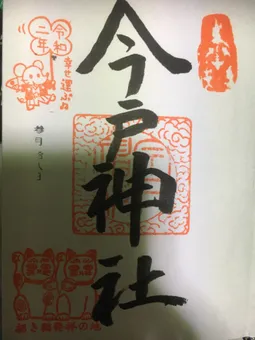 今戸神社
令和
二年
幸せ運ぶね
招き猫発祥の地